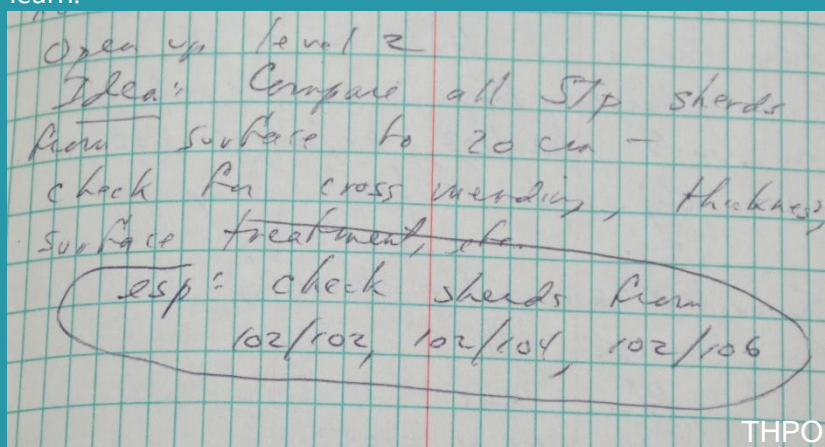 learn.
Open up level 2
Idea: Compare all STP sherds
from surface to 20 cm -
check for cross mending, thickness,
surface treatment, etc.
esp: check sherds from
102/102, 102/104, 102/106
THPO